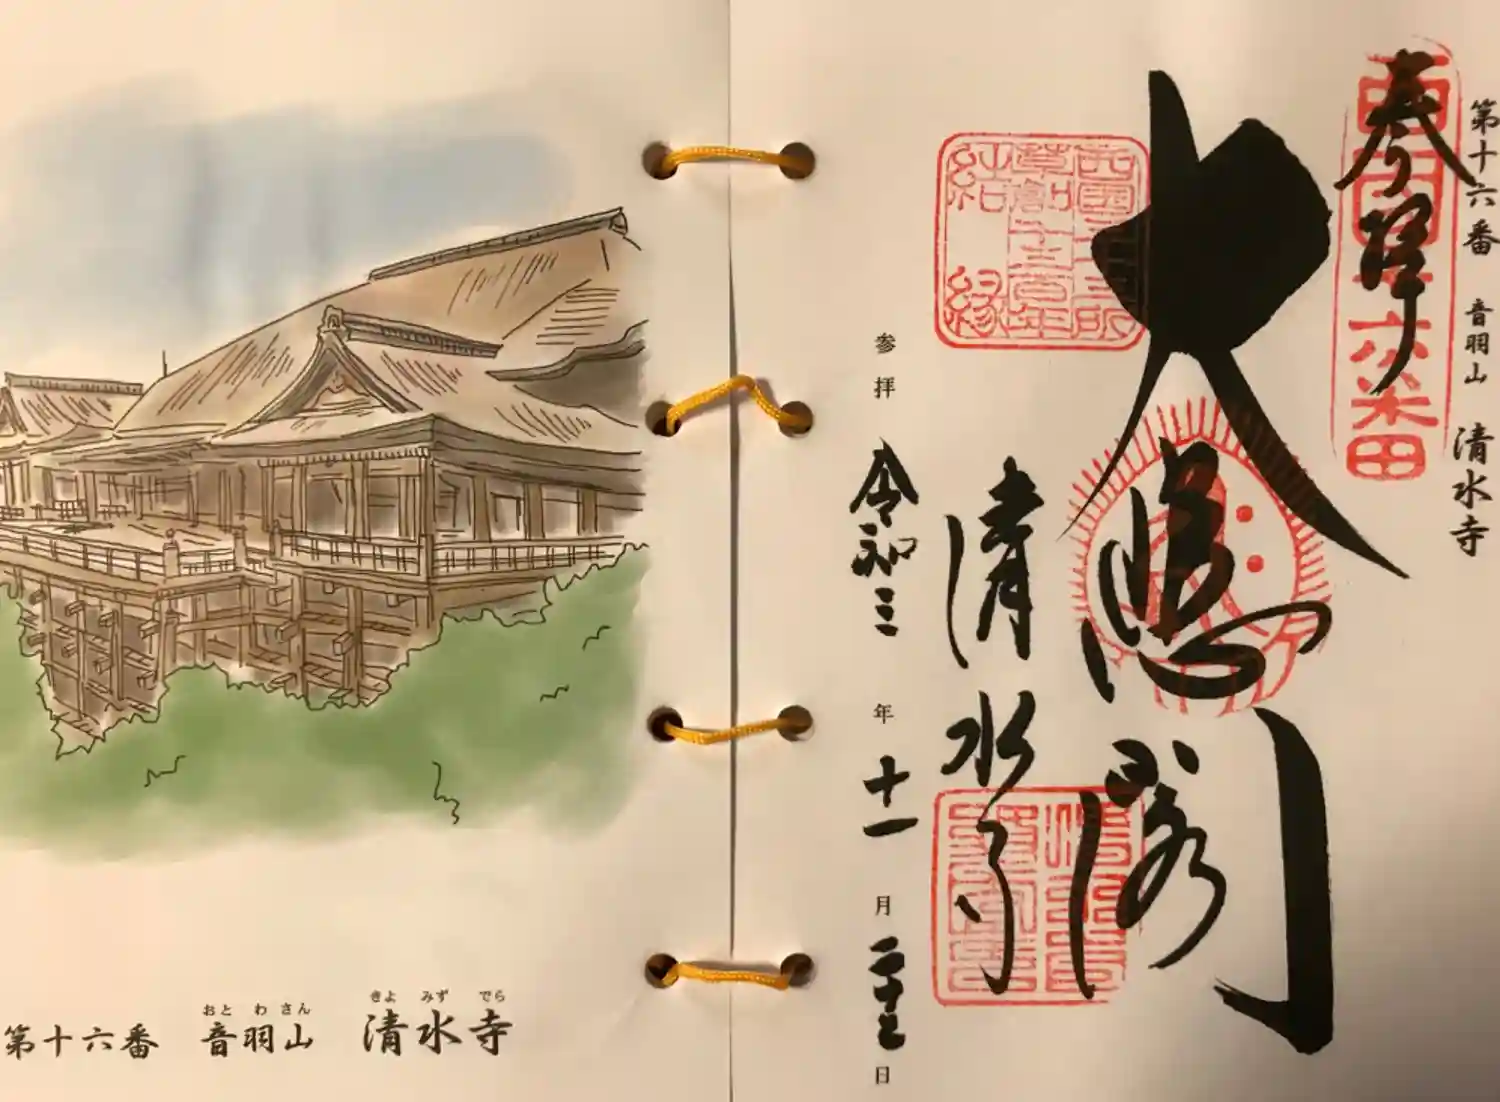 第十六番 音羽山 清水寺
奉拝
西国十六番
大悲閣
西国三十三所
草創千三百年
結縁
清水寺
参拝 令和三年十一月 日
おと わ さん きよ みず でら
第十六番 音羽山 清水寺